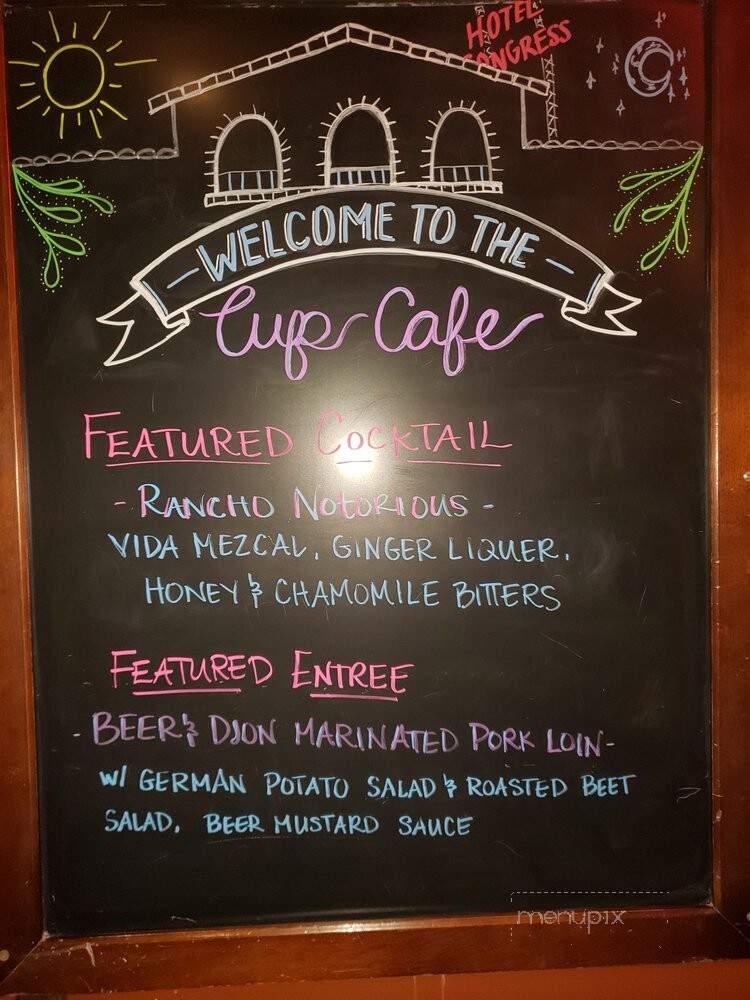 HOTEL
CONGRESS
- WELCOME TO THE -
Cup Cafe
FEATURED COCKTAIL
- RANCHO NOTORIOUS -
VIDA MEZCAL, GINGER LIQUER,
HONEY & CHAMOMILE BITTERS
FEATURED ENTREE
- BEER & DJON MARINATED PORK LOIN -
W/ GERMAN POTATO SALAD & ROASTED BEET
SALAD, BEER MUSTARD SAUCE
menupix